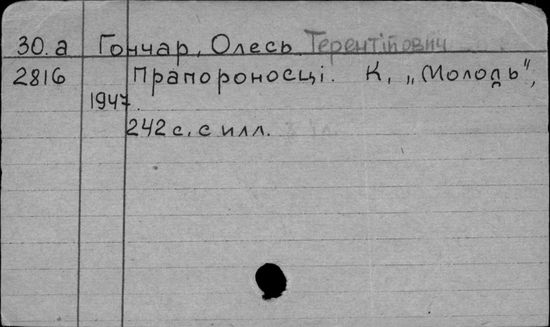 30.а Гончар, Олесь Терентійович
2816 Прапороносці. К, „Молодь",
1947.
242 с. с илл.